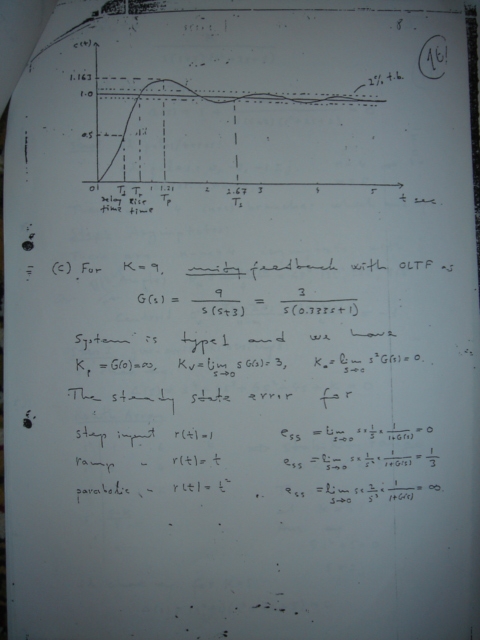 c(t)
16!
1.163
2% t.b.
1.0
0.5
0 Td Tr 1 1.21 2 2.67 3 4 5 t sec.
Delay time Rise time Tp Ts
(c) For K=9, unity feedback with OLTF as
G(s) = 9/(s(s+3)) = 3/(s(0.333s+1))
System is type 1 and we have
Kp = G(0)=∞, Kv = lim s→0 sG(s) = 3, Ka = lim s→0 s²G(s) = 0.
The steady state error for
step input r(t)=1 ess = lim s→0 s×1/s×1/(1+G(s)) = 0
ramp " r(t)=t ess = lim s→0 s×1/s²×1/(1+G(s)) = 1/3
parabolic " r(t)=t² ess = lim s→0 s×2/s³×1/(1+G(s)) = ∞.